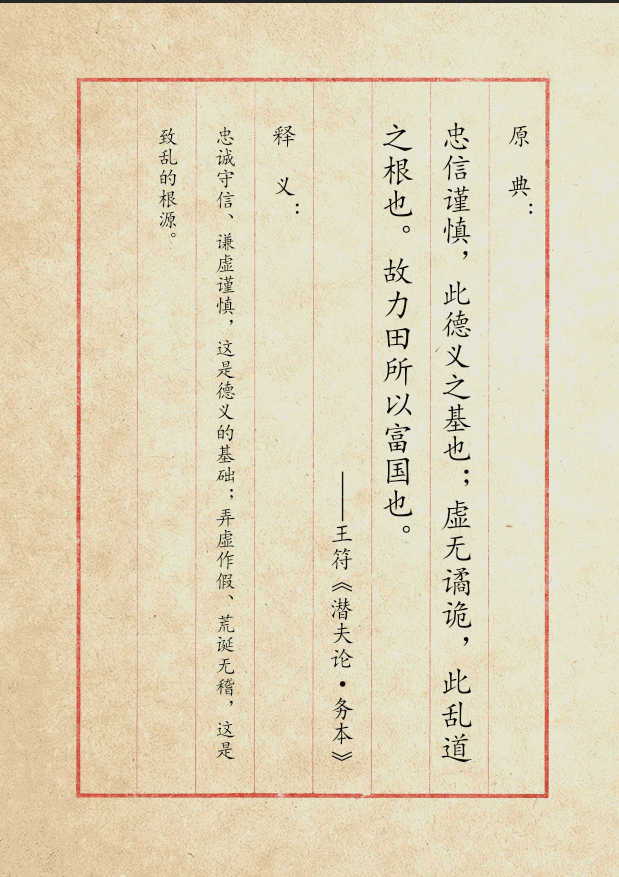 原典：
忠信谨慎，此德义之基也；虚无谲诡，此乱道
之根也。故力田所以富国也。
——王符《潜夫论·务本》
释义：
忠诚守信、谦虚谨慎，这是德义的基础；弄虚作假、荒诞无稽，这是
致乱的根源。